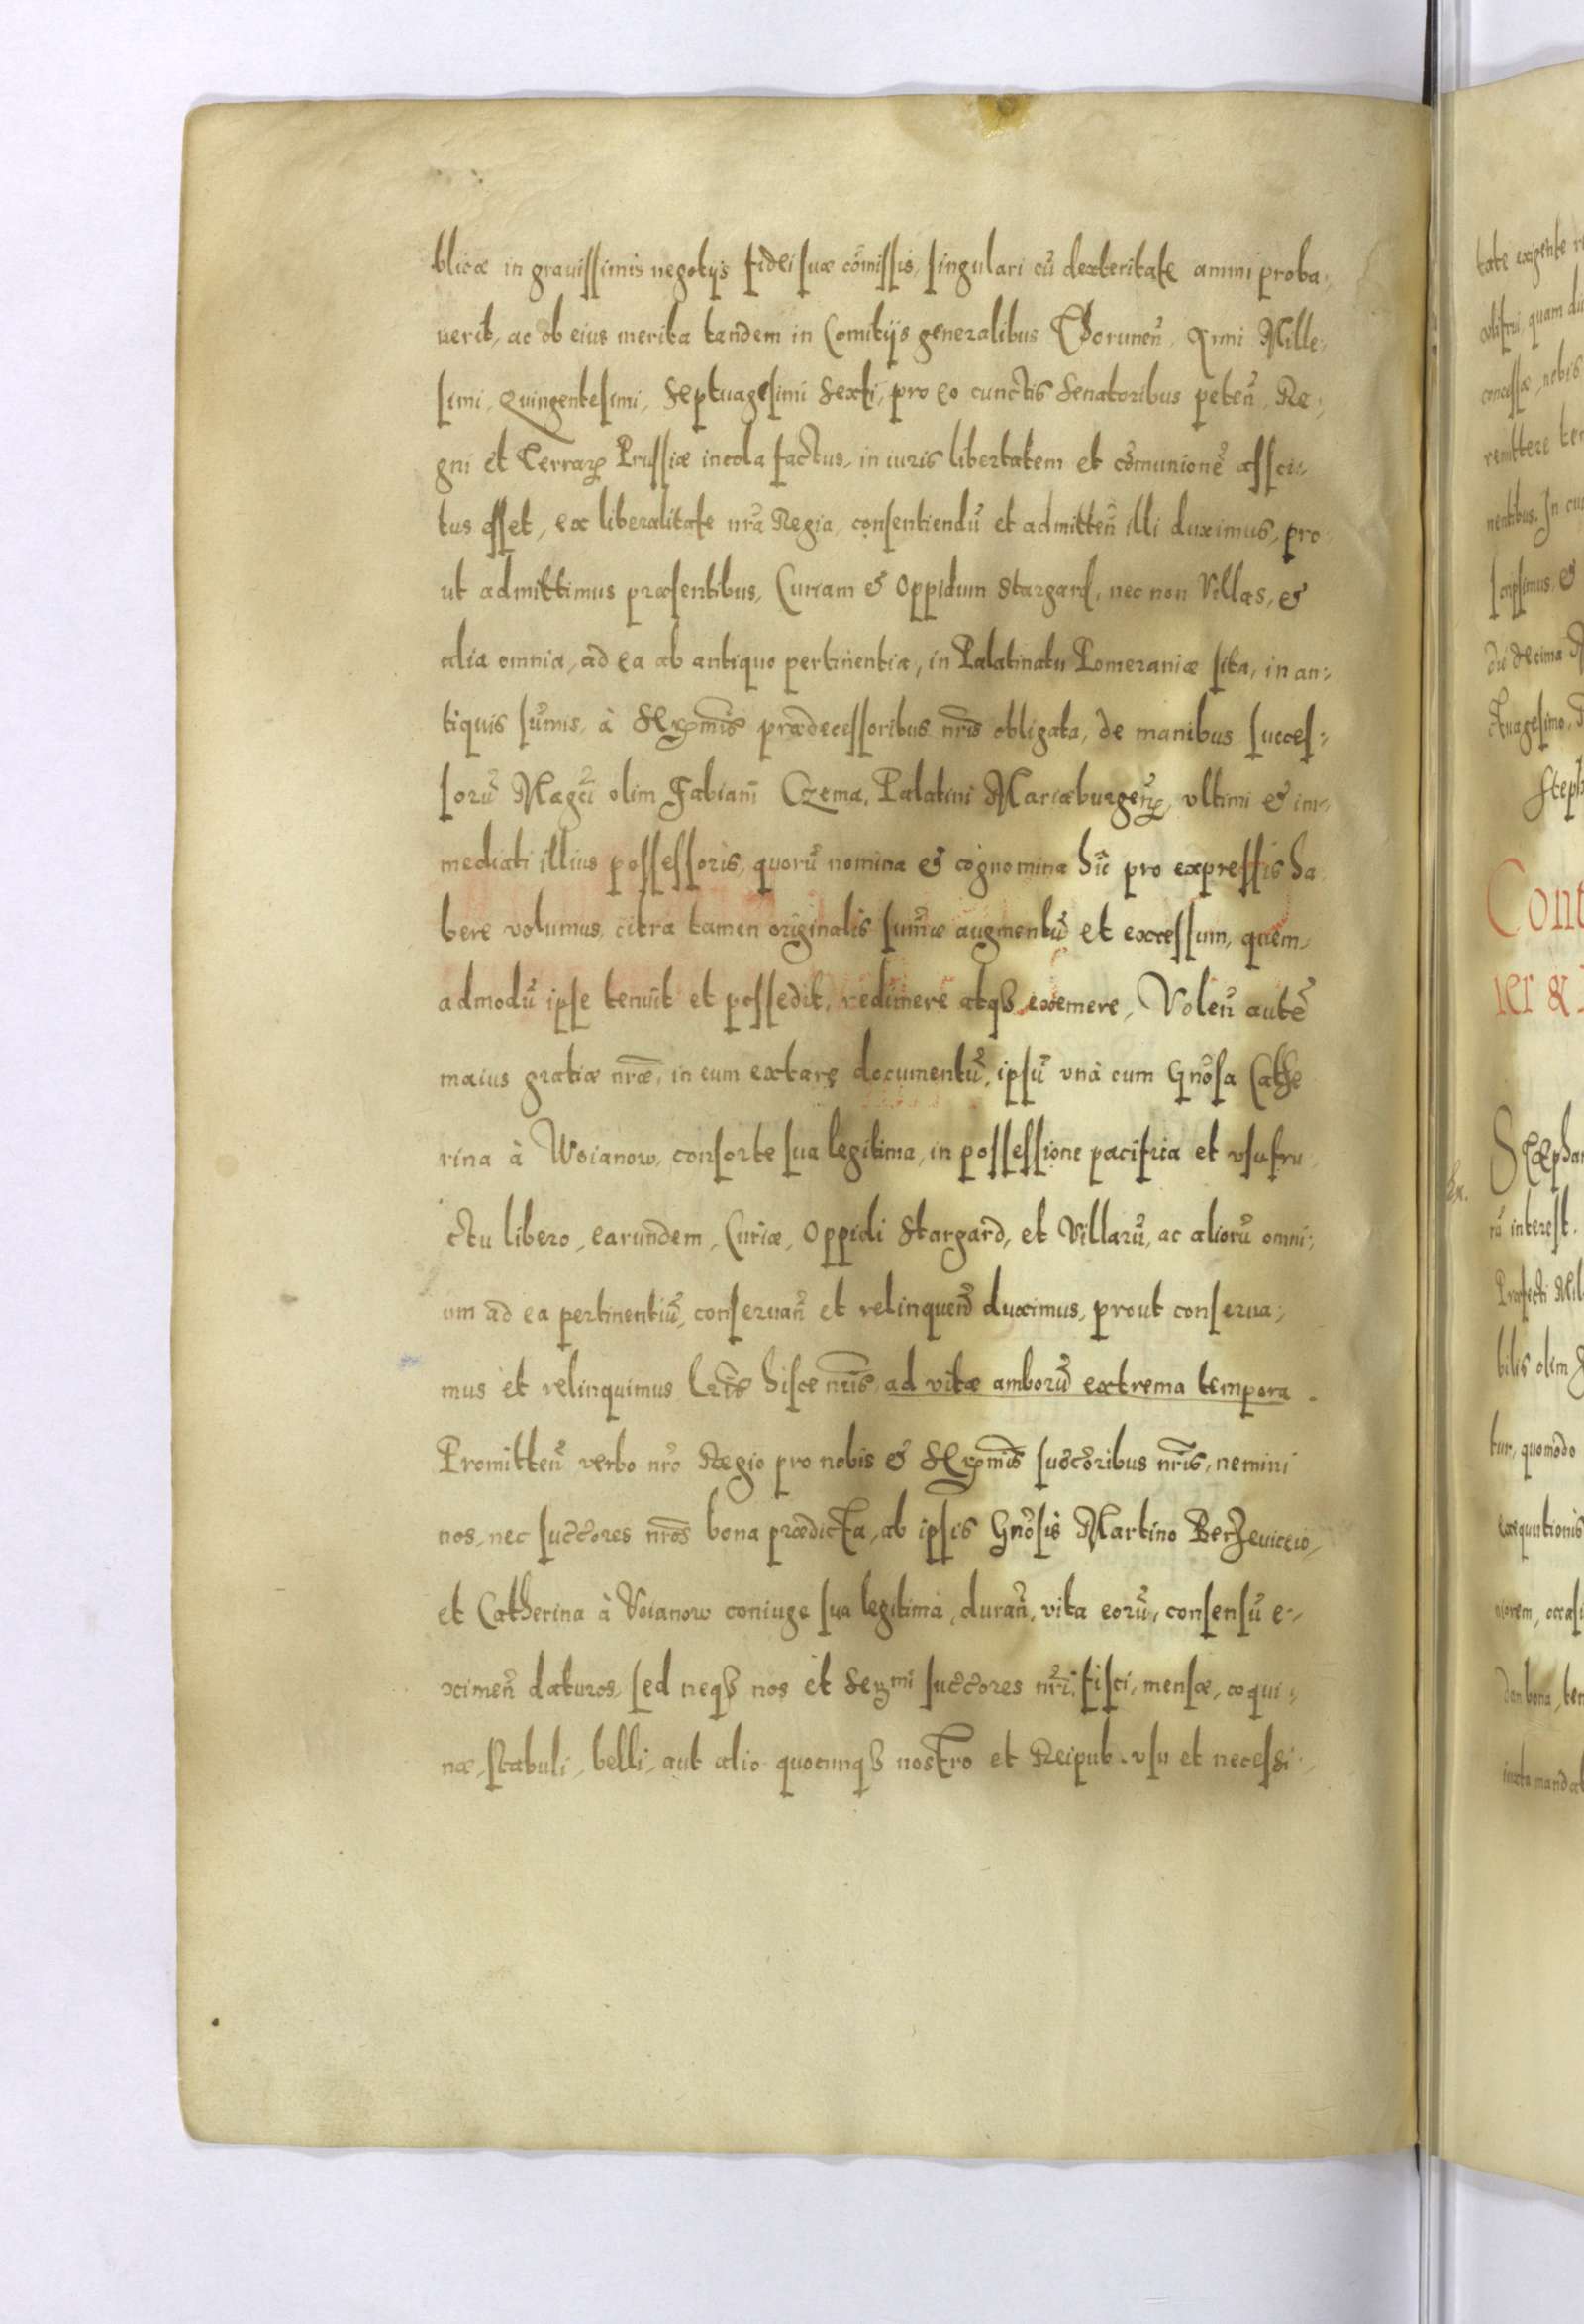 blicæ in grauissimis negotijs fidei suæ cõmissis, singulari cũ dexteritate animi proba,
uerit, ac ob eius merita tandem in Comitijs generalibus Thoruneñ. Anni Mille,
simi, Quingentesimi, Septuagesimi Sexti, pro eo cunctis Senatoribus peteñ, Re,
gni et Terrarꝝ Prussiæ incola factus, in iuris libertatem et cõmunionẽ assci,,
tus esset, ex liberalitate nrã Regia, consentiendũ et admitteñ illi duximus, pro
ut admittimus præsentibus, Curiam & Oppidum Stargard, nec non Villas, &
alia omnia, ad ea ab antiquo pertinentia, in Palatinatu Pomeraniæ sita, in an:,
tiquis sũmis, à Serꝝmis prædecessoribus nr̃is obligata, de manibus succes:,
sorũ Magc̃i olim Fabiani Czema, Palatini Mariæburgeñ, vltimi & im,,
mediati illius possessoris, quorũ nomina & cognomina hîc pro expressis ha
bere volumus, citra tamen originalis sum̃æ augmentũ et excessum, quem,,
admodũ ipse tenuit et possedit, redimere atqȝ eximere, Voleñ autẽ
maius gratiæ nr̃æ, in eum extare documentũ, ipsũ vnà cum Gnõsa Cathe
rina à Woianow, consorte sua legitima, in possessione pacifica et vsufru,
ctu libero, earundem, Curiæ, Oppidi Stargard, et Villarũ, ac aliorũ omni:,
um ad ea pertinentiũ, conseruañ et relinqueñd duximus, prout conserua,
mus et relinquimus Lr̃is hisce nr̃is, ad vitæ amborũ extrema tempora.
Promitteñ verbo nrõ Regio pro nobis & Serꝝmis succ̃oribus nr̃is, nemini
nos, nec succ̃ores nr̃os bona prædicta, ab ipsis Gnõsis Martino Berzeuiceio,
et Catherina à Voianow coniuge sua legitima, durañ, vita eorũ, consensũ e,,
ximeñ daturos, sed neqȝ nos et Serꝝmi succ̃ores nr̃i, fisci, mensæ, coqui,,
næ, stabuli, belli, aut alio quocunqȝ nostro et Reipub. vsu et necessi,